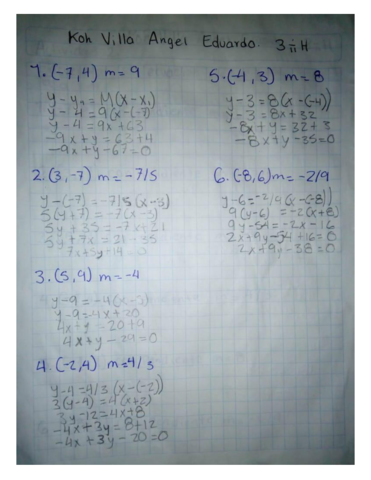 Koh Villa Angel Eduardo. 3 π H
1. (-7,4) m = 9
y-y₁ = M(x-x₁)
y-4 = 9(x-(-7))
y-4 = 9x+63
-9x+y = 63+4
-9x+y-67=0
2. (3,-7) m = -7/5
y-(-7) = -7/5 (x-3)
5(y+7) = -7(x-3)
5y+35 = -7x+21
5y+7x = 21-35
7x+5y-14=0
3. (5,9) m = -4
y-9 = -4(x-5)
y-9 = 4x+20
4x-y = 20+9
4x+y-29=0
4. (-2,4) m = 4/3
y-4 = 4/3 (x-(-2))
3(y-4) = 4(x+2)
3y-12 = 4x+8
-4x+3y = 8+12
-4x+3y-20=0
5. (-4,3) m = 8
y-3 = 8(x-(-4))
y-3 = 8x+32
-8x+y = 32+3
-8x+y-35=0
6. (-8,6) m = -2/9
y-6 = -2/9 (x-(-8))
9(y-6) = -2(x+8)
9y-54 = -2x-16
2x+9y-54+16=0
2x+9y-38=0